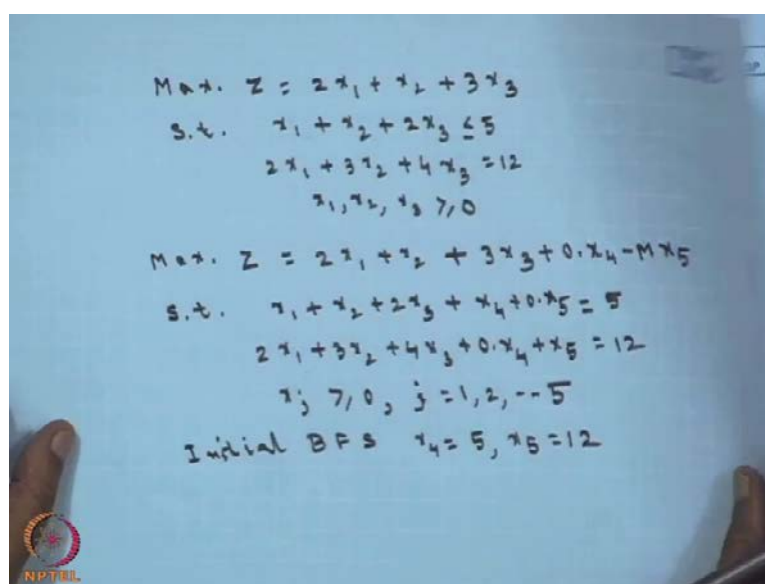 Max. Z = 2x₁ + x₂ + 3x₃
s.t. x₁ + x₂ + 2x₃ ≤ 5
2x₁ + 3x₂ + 4x₃ = 12
x₁, x₂, x₃ ≥ 0
Max. Z = 2x₁ + x₂ + 3x₃ + 0.x₄ - Mx₅
s.t. x₁ + x₂ + 2x₃ + x₄ + 0.x₅ = 5
2x₁ + 3x₂ + 4x₃ + 0.x₄ + x₅ = 12
xⱼ ≥ 0, j = 1, 2, -- 5
Initial BFS x₄ = 5, x₅ = 12
NPTEL